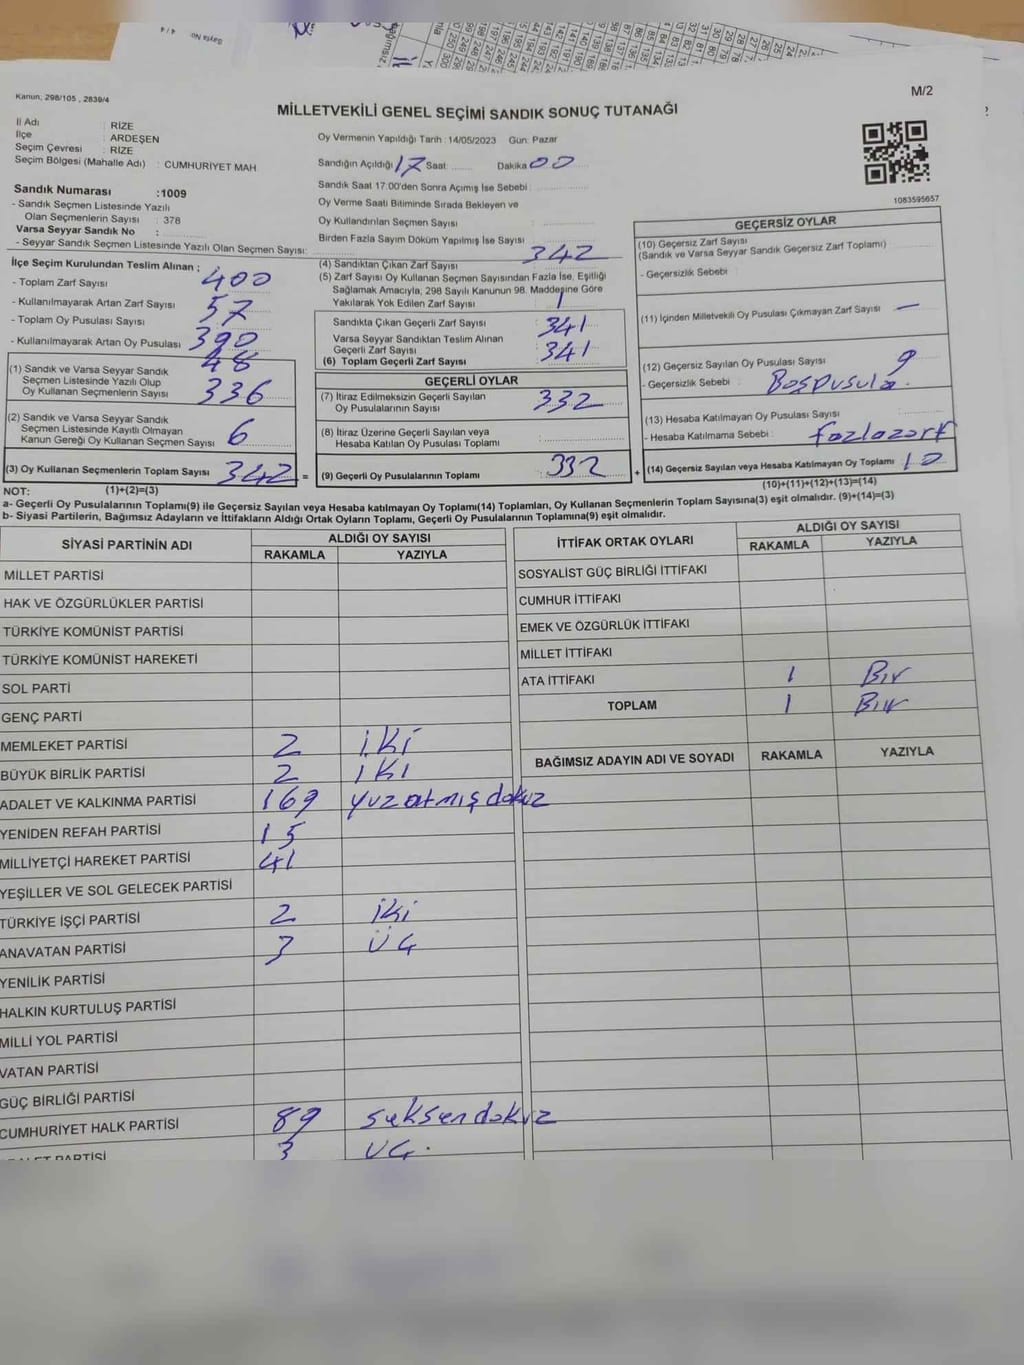 Sayfa No 4 / 4
Kanun; 298/105 , 2839/4
M/2
MİLLETVEKİLİ GENEL SEÇİMİ SANDIK SONUÇ TUTANAĞI
İl Adı : RİZE
İlçe : ARDEŞEN
Seçim Çevresi : RİZE
Seçim Bölgesi (Mahalle Adı) : CUMHURİYET MAH
Oy Vermenin Yapıldığı Tarih : 14/05/2023 Gün: Pazar
Sandığın Açıldığı 17 Saat Dakika 00
Sandık Saat 17:00'den Sonra Açımış İse Sebebi :
Oy Verme Saati Bitiminde Sırada Bekleyen ve
Oy Kullandırılan Seçmen Sayısı :
Birden Fazla Sayım Döküm Yapılmış İse Sayısı :
1083595657
Sandık Numarası : 1009
- Sandık Seçmen Listesinde Yazılı
Olan Seçmenlerin Sayısı : 378
Varsa Seyyar Sandık No :
- Seyyar Sandık Seçmen Listesinde Yazılı Olan Seçmen Sayısı:
İlçe Seçim Kurulundan Teslim Alınan ;
- Toplam Zarf Sayısı 400
- Kullanılmayarak Artan Zarf Sayısı 57
- Toplam Oy Pusulası Sayısı 390
- Kullanılmayarak Artan Oy Pusulası 48
(1) Sandık ve Varsa Seyyar Sandık
Seçmen Listesinde Yazılı Olup
Oy Kullanan Seçmenlerin Sayısı 336
(2) Sandık ve Varsa Seyyar Sandık
Seçmen Listesinde Kayıtlı Olmayan
Kanun Gereği Oy Kullanan Seçmen Sayısı 6
(3) Oy Kullanan Seçmenlerin Toplam Sayısı 342 =
(4) Sandıktan Çıkan Zarf Sayısı 342
(5) Zarf Sayısı Oy Kullanan Seçmen Sayısından Fazla İse, Eşitliği
Sağlamak Amacıyla, 298 Sayılı Kanunun 98. Maddesine Göre
Yakılarak Yok Edilen Zarf Sayısı 1
Sandıkta Çıkan Geçerli Zarf Sayısı 341
Varsa Seyyar Sandıktan Teslim Alınan
Geçerli Zarf Sayısı 341
(6) Toplam Geçerli Zarf Sayısı
GEÇERLİ OYLAR
(7) İtiraz Edilmeksizin Geçerli Sayılan
Oy Pusulalarının Sayısı 332
(8) İtiraz Üzerine Geçerli Sayılan veya
Hesaba Katılan Oy Pusulası Toplamı :
(9) Geçerli Oy Pusulalarının Toplamı 332 +
GEÇERSİZ OYLAR
(10) Geçersiz Zarf Sayısı
(Sandık ve Varsa Seyyar Sandık Geçersiz Zarf Toplamı)
- Geçersizlik Sebebi :
(11) İçinden Milletvekili Oy Pusulası Çıkmayan Zarf Sayısı —
(12) Geçersiz Sayılan Oy Pusulası Sayısı 9
- Geçersizlik Sebebi : Boşpusula.
(13) Hesaba Katılmayan Oy Pusulası Sayısı
- Hesaba Katılmama Sebebi : fazlazarf
(14) Geçersiz Sayılan veya Hesaba Katılmayan Oy Toplamı 10
NOT: (1)+(2)=(3)
(10)+(11)+(12)+(13)=(14)
a- Geçerli Oy Pusulalarının Toplamı(9) ile Geçersiz Sayılan veya Hesaba katılmayan Oy Toplamı(14) Toplamları, Oy Kullanan Seçmenlerin Toplam Sayısına(3) eşit olmalıdır. (9)+(14)=(3)
b- Siyasi Partilerin, Bağımsız Adayların ve İttifakların Aldığı Ortak Oyların Toplamı, Geçerli Oy Pusulalarının Toplamına(9) eşit olmalıdır.
SİYASİ PARTİNİN ADI ALDIĞI OY SAYISI
RAKAMLA YAZIYLA
MİLLET PARTİSİ
HAK VE ÖZGÜRLÜKLER PARTİSİ
TÜRKİYE KOMÜNİST PARTİSİ
TÜRKİYE KOMÜNİST HAREKETİ
SOL PARTİ
GENÇ PARTİ
MEMLEKET PARTİSİ 2 İKİ
BÜYÜK BİRLİK PARTİSİ 2 IKI
ADALET VE KALKINMA PARTİSİ 169 yuzatmışdokuz
YENİDEN REFAH PARTİSİ 15
MİLLİYETÇİ HAREKET PARTİSİ 41
YEŞİLLER VE SOL GELECEK PARTİSİ
TÜRKİYE İŞÇİ PARTİSİ 2 iki
ANAVATAN PARTİSİ 3 ÜÇ
YENİLİK PARTİSİ
HALKIN KURTULUŞ PARTİSİ
MİLLİ YOL PARTİSİ
VATAN PARTİSİ
GÜÇ BİRLİĞİ PARTİSİ
CUMHURİYET HALK PARTİSİ 89 seksendokuz
PARTİSİ 3 UÇ.
İTTİFAK ORTAK OYLARI ALDIĞI OY SAYISI
RAKAMLA YAZIYLA
SOSYALİST GÜÇ BİRLİĞİ İTTİFAKI
CUMHUR İTTİFAKI
EMEK VE ÖZGÜRLÜK İTTİFAKI
MİLLET İTTİFAKI
ATA İTTİFAKI 1 Bır
TOPLAM 1 Bır
BAĞIMSIZ ADAYIN ADI VE SOYADI RAKAMLA YAZIYLA